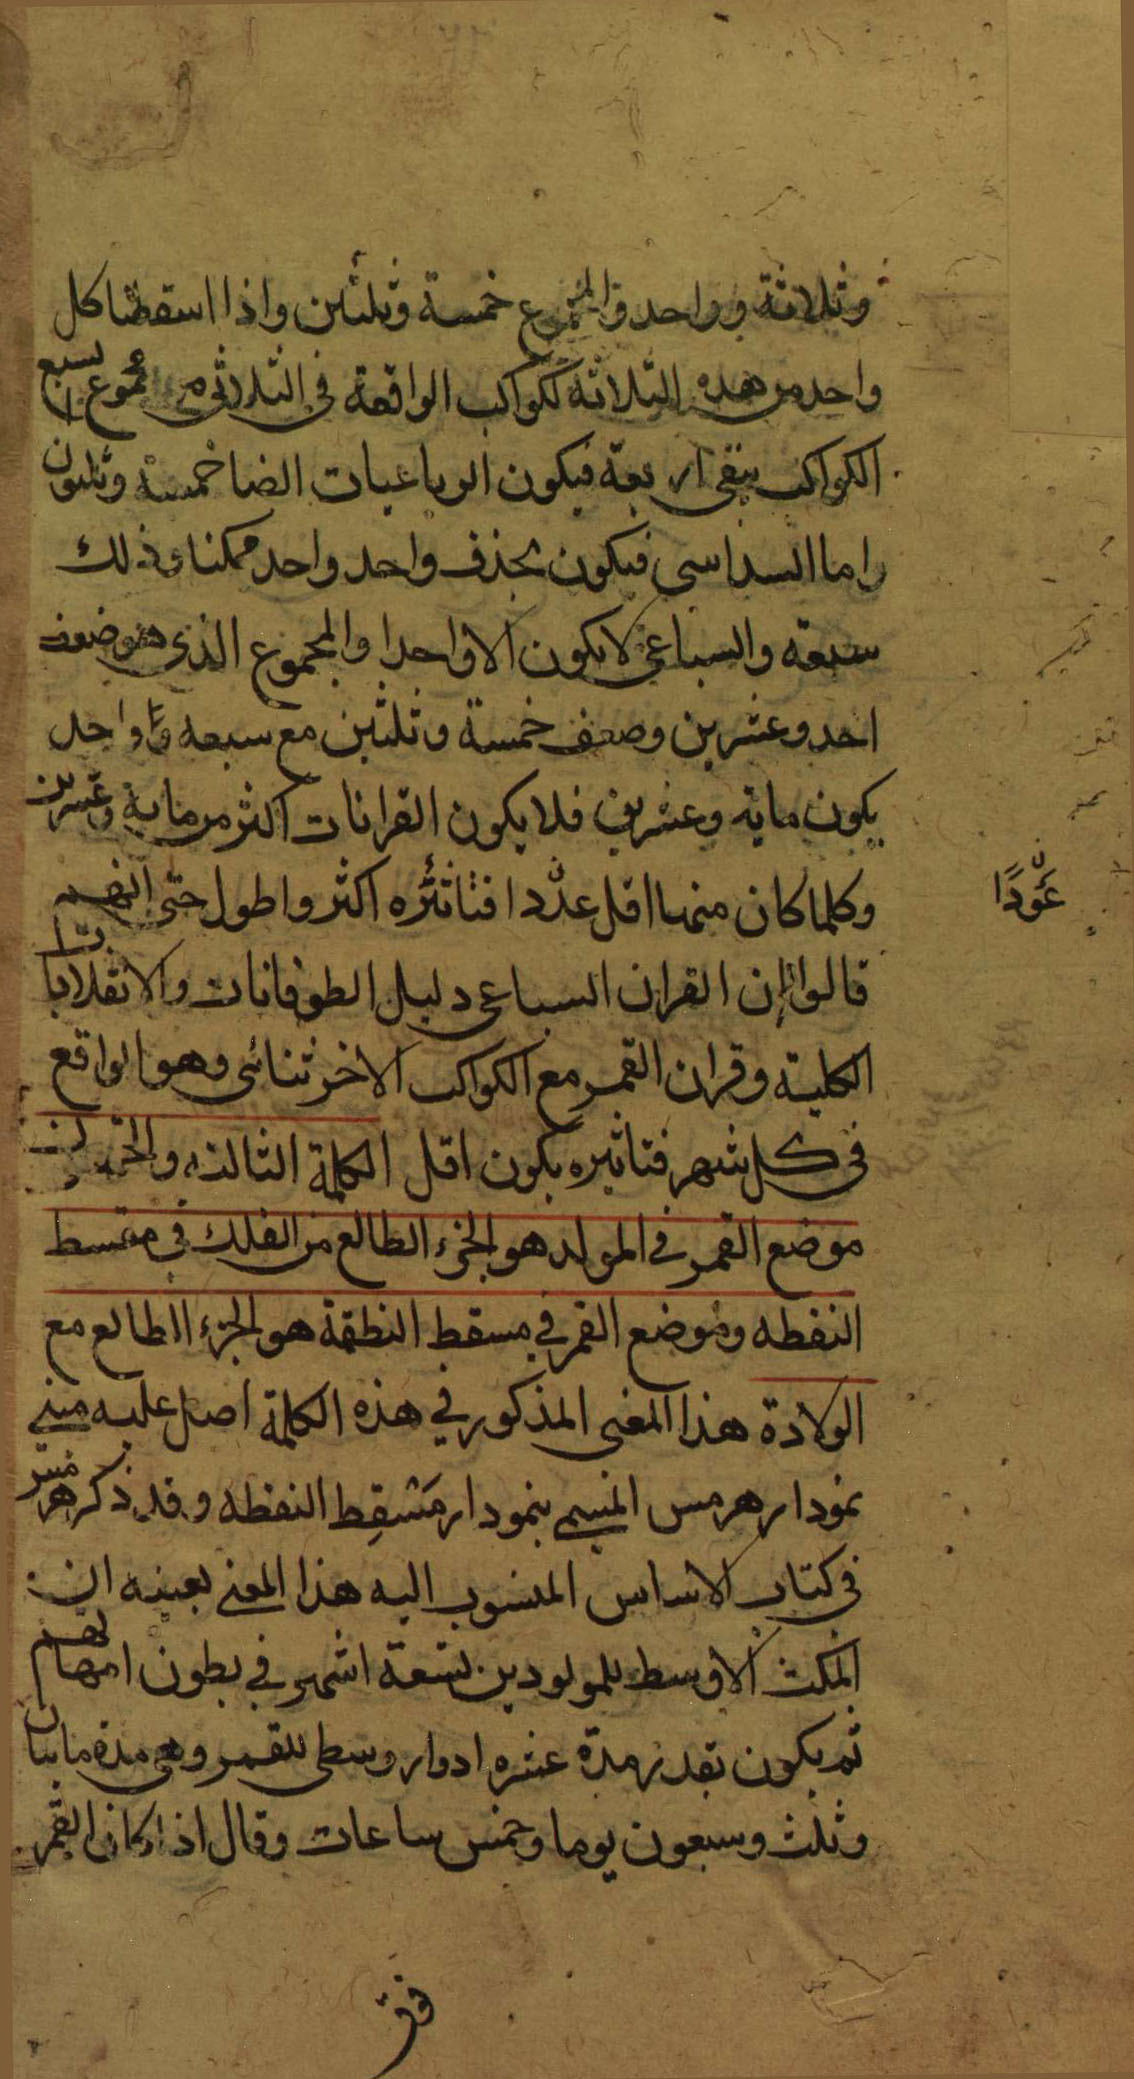 وثلاثة وواحد والمجموع خمسة وثلثين واذا اسقطنا كل
واحد من هذه الثلاثة لكواكب الواقعة فى الثلاثى من مجموع سبع
الكواكب يبقى اربعة فيكون الرباعيات ايضا خمسة وثلثون
واما السداسى فيكون بحذف واحد واحد ممكنا وذلك
سبعة والسباعى لا يكون الا واحدا والمجموع الذى هو ضعف
احد وعشرين وضعف خمسة وثلثين مع سبعة وواحد
يكون ماية وعشرين فلا يكون القرانات اكثر من ماية وعشرين
وكلما كان منها اقل عددا فتاثيره اكثر واطول حتى انهم
عَوْدًا
قالوا ان القران السباعى دليل الطوفانات والانقلابات
الكلية وقران القمر مع الكواكب الاخر ثنائى وهو الواقع
فى كل شهر فتاثيره يكون اقل الكلمة الثالثة والخمسون
موضع القمر فى المولد هو الجزء الطالع من الفلك فى مسقط
النفطه وموضع القمر فى مسقط النطفة هو الجزء الطالع مع
الولادة هذا المعنى المذكور فى هذه الكلمة اصل عليه مبنى
نمودار هرمس المسمى بنمودار مَسْقِط النفطه وقد ذكر هرمس
فى كتاب الاساس المنسوب اليه هذا المعنى بعينه ان
المكث الاوسط للمولودين تسعة اشهر فى بطون امهاتهم
ثم يكون بقدر مدة عشره ادوار وسطى للقمر وهى مدة مايتان
وثلث وسبعون يوما وخمس ساعات وقال اذا كان القمر
فوق